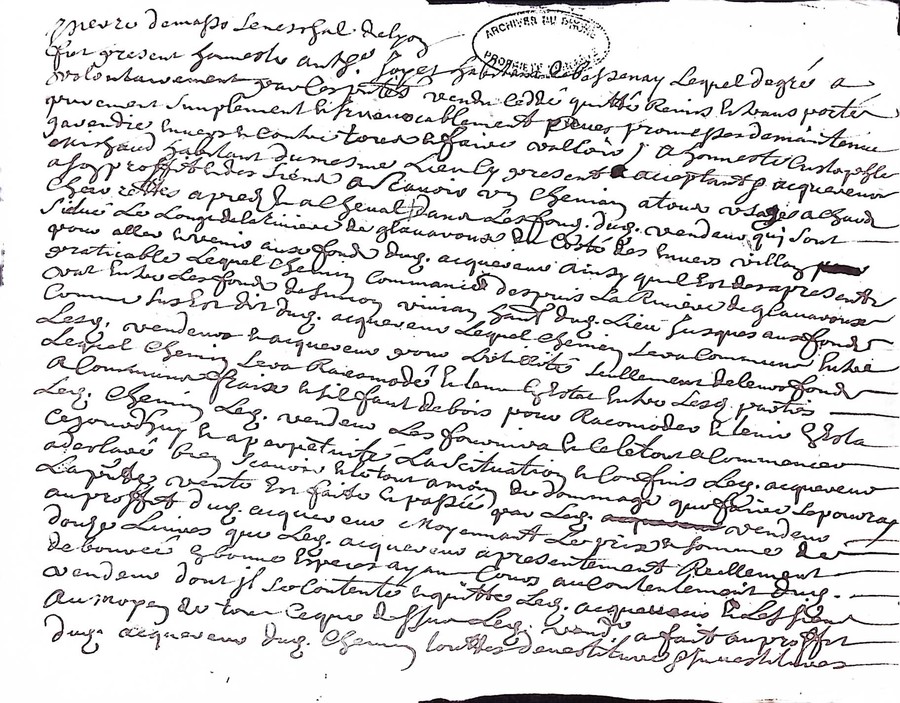 pierre demasso seneschal de lyon
ARCHIVES DU RHONE
PROPRIETE
fut present honneste anth.e habitant de bessenay Lequel de gré a
volontairement par Ces p.ntes vendu Ceddé quitté Remis et transporté
purement simplement et irrevocablement promesses de maintenir
garendir envers et contre tous affaire valloir a honneste Cristophle
habitant du mesme Lieu Cy present acceptant acquereur
a son proffit et des siens a scavoir un Chemin a tous usages a Chard
Chevrottes a pied et a Cheval dans Les fond. dud. vendeur qui sont
situé Le Long de la riviere de glavarouse du Costé des Envers
pour aller et venir aux fonds dud. acquereur ainsy quil Est des a present
praticable Lequel Chemin Commance despuis La Riviere de glavarouse
Entre Les fonds de simon vivian dud. Lieu Jusques aux fonds
Comme sus Est dit dud. acquereur Lequel Chemin sera Commun Entre
Lesq. vendeur et acquereur pour seullement de leurs fonds
Lequel Chemin sera Racomodé et tenu En Estat Entre Lesq. parties
a Communs fraix et sil faut de bois pour Racomoder et tenir En Esta
Led. Chemin Led. vendeur Les fournira et le tout a Commencer
Cejourdhuy et a perpetuité La scituation et Confins Led. acquereur
a declaré bien scavoir et le tout a moins de dommage que faire se pourra
La p.nte vente Est faite et passée par Led. vendeur
au proffit dud. acquereur moyennant Le prix et somme de
douze Livres que Led. acquereur a presentement Reellement
de boursé En bonnes Especes ayant Cours au Contentement dud.
vendeur dont il se Contente Et quitte Led. acquereur Et Les siens
au moyen de tout Ceque dessus Led. vendr. a fait au proffit
dud. acquereur dud. Chemin touttes